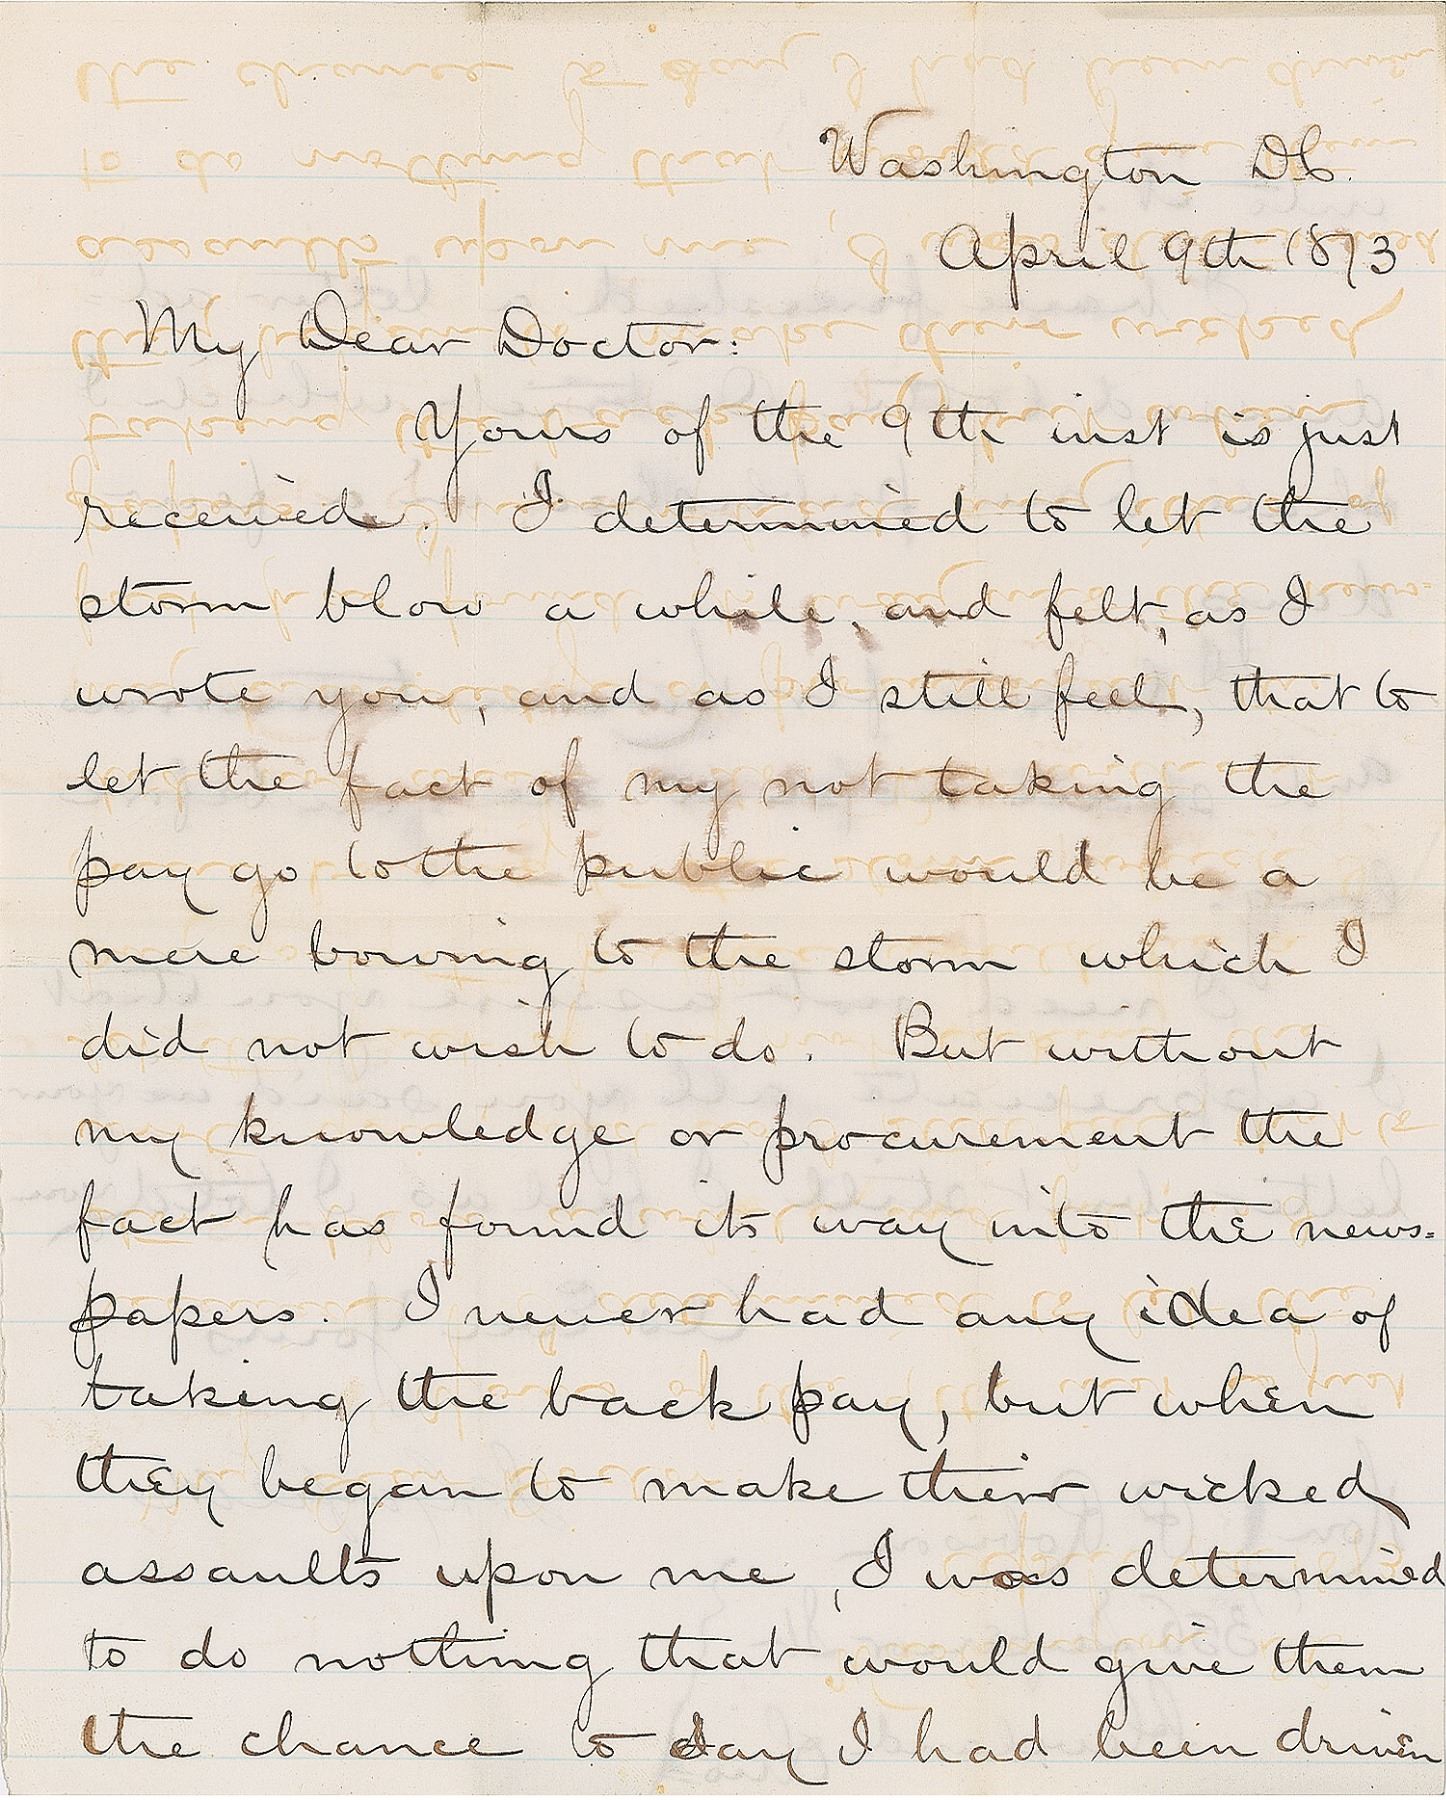 Washington D.C.
April 9th 1873
My Dear Doctor:
Yours of the 9th inst is just
received. I determined to let the
storm blow a while, and felt, as I
wrote you, and as I still feel, that to
let the fact of my not taking the
pay go to the public would be a
mere bowing to the storm which I
did not wish to do. But without
my knowledge or procurement the
fact has found its way into the news=
papers. I never had any idea of
taking the back pay, but when
they began to make their wicked
assaults upon me, I was determined
to do nothing that would give them
the chance to say I had been driven